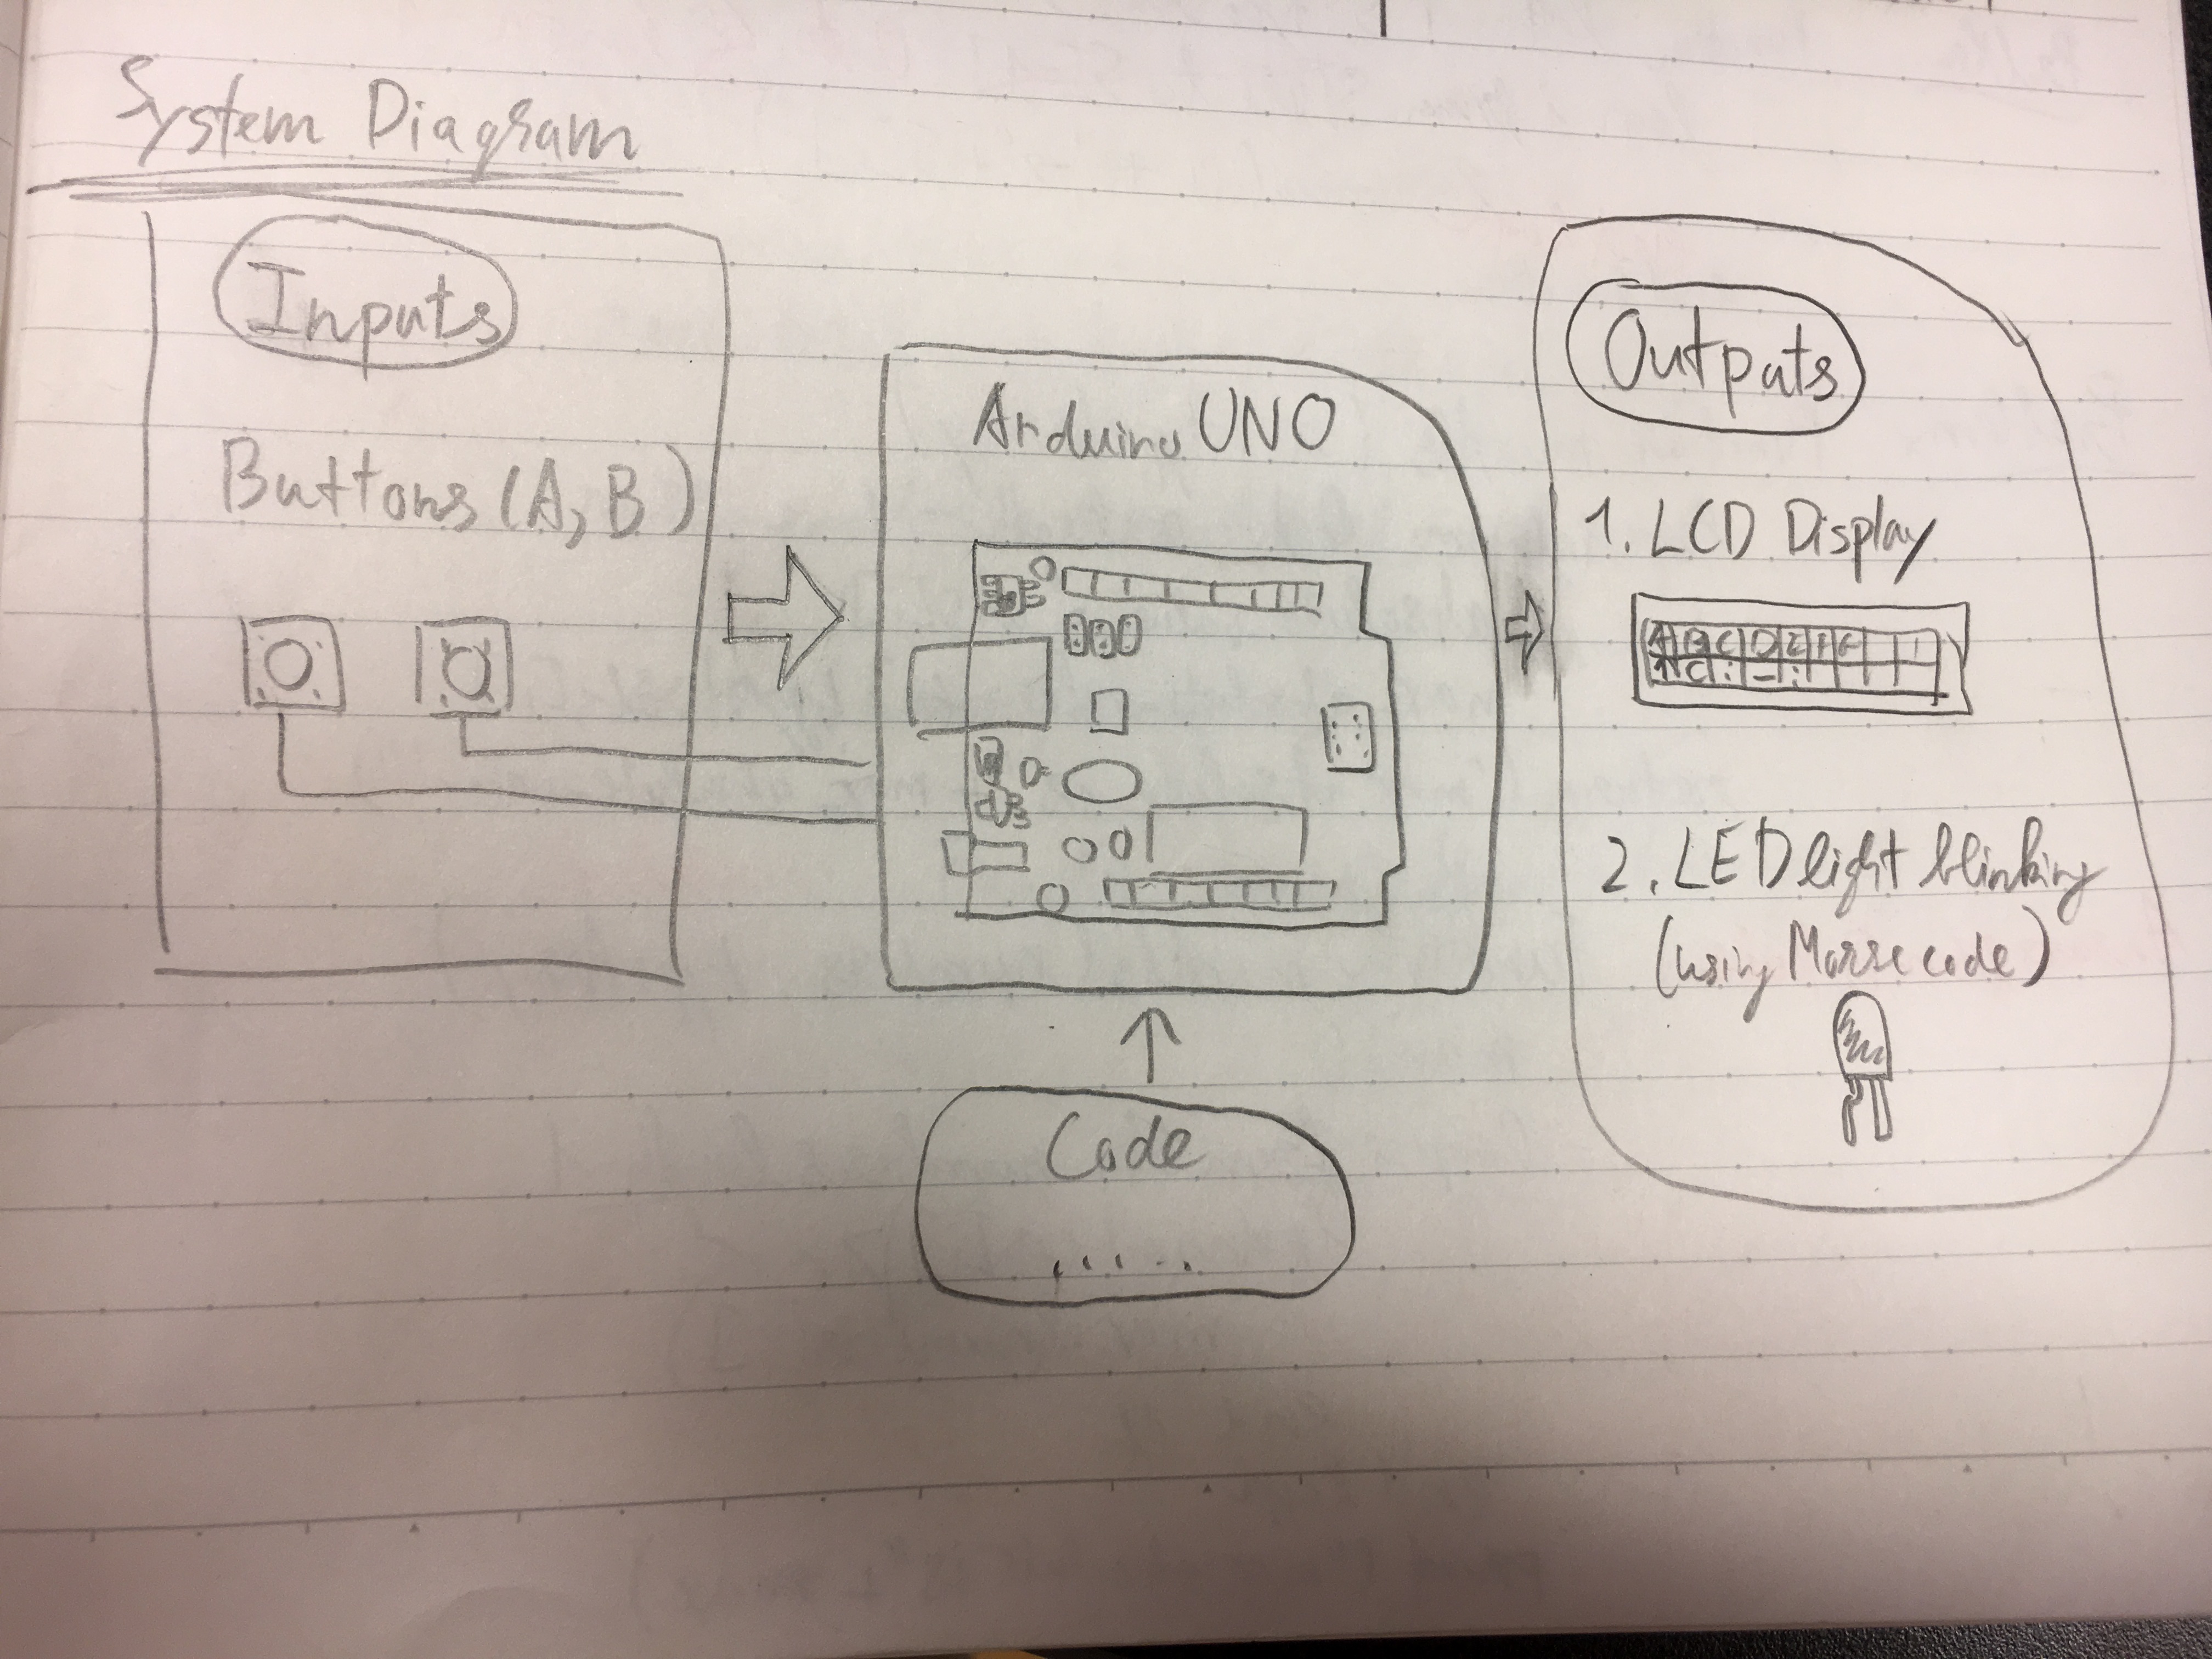 System Diagram
Inputs
Buttons (A, B)
Arduino UNO
Code
.....
Outputs
1. LCD Display
A B C D E F G
2. LED light blinking
(using Morse code)